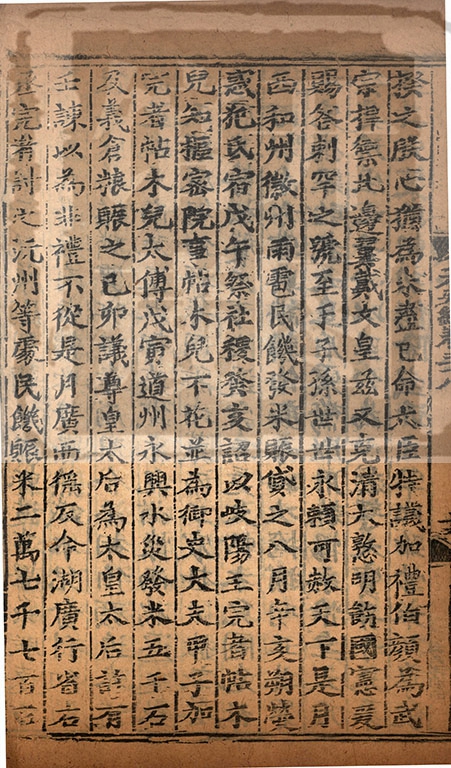 揆之朕心猶為未盡已命大臣特議加禮伯顏為武
宗捍禦北邊翼戴文皇茲又克清大憝明飭國憲爰
賜答剌罕之號至于子孫世世永賴可赦天下是月
西和州徽州雨雹民饑發米賑貸之八月辛亥朔熒
惑犯氐宿戊午祭社稷癸亥詔以岐陽王完者帖木
兒知樞密院事帖木兒不花並為御史大夫甲子加
完者帖木兒太傅戊寅道州永興水災發米五千石
及義倉糧賑之己卯議尊皇太后為太皇太后許有
壬諫以為非禮不從是月廣西猺反命湖廣行省右
丞完者討之沅州等處民饑賑米二萬七千七百石